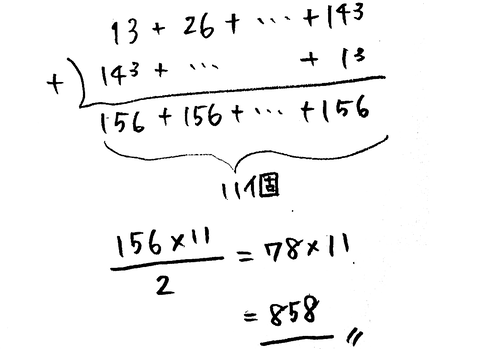 13 + 26 + ... + 143
+) 143 + ... + 13
156 + 156 + ... + 156
11個
156×11
2
= 78×11
= 858 〃